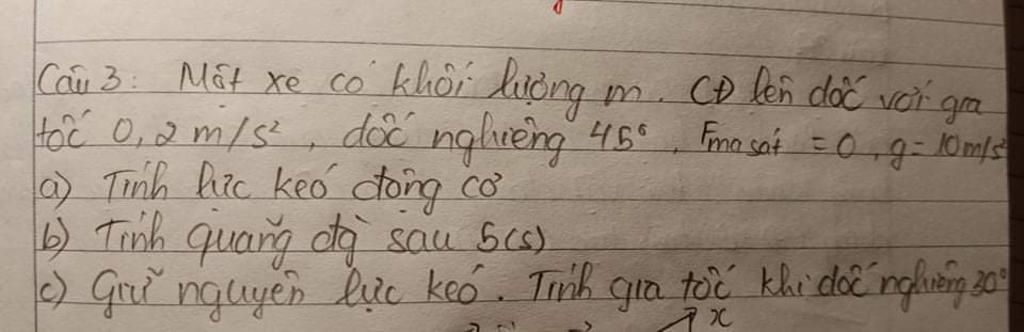 Câu 3: Một xe có khối lượng m. CĐ lên dốc với gia
tốc 0,2 m/s², dốc nghiêng 45°, Fma sát = 0, g = 10m/s²
a) Tính lực kéo động cơ
b) Tính quãng đg sau 5(s)
c) Giữ nguyên lực kéo. Tính gia tốc khi dốc nghiêng 30°
x